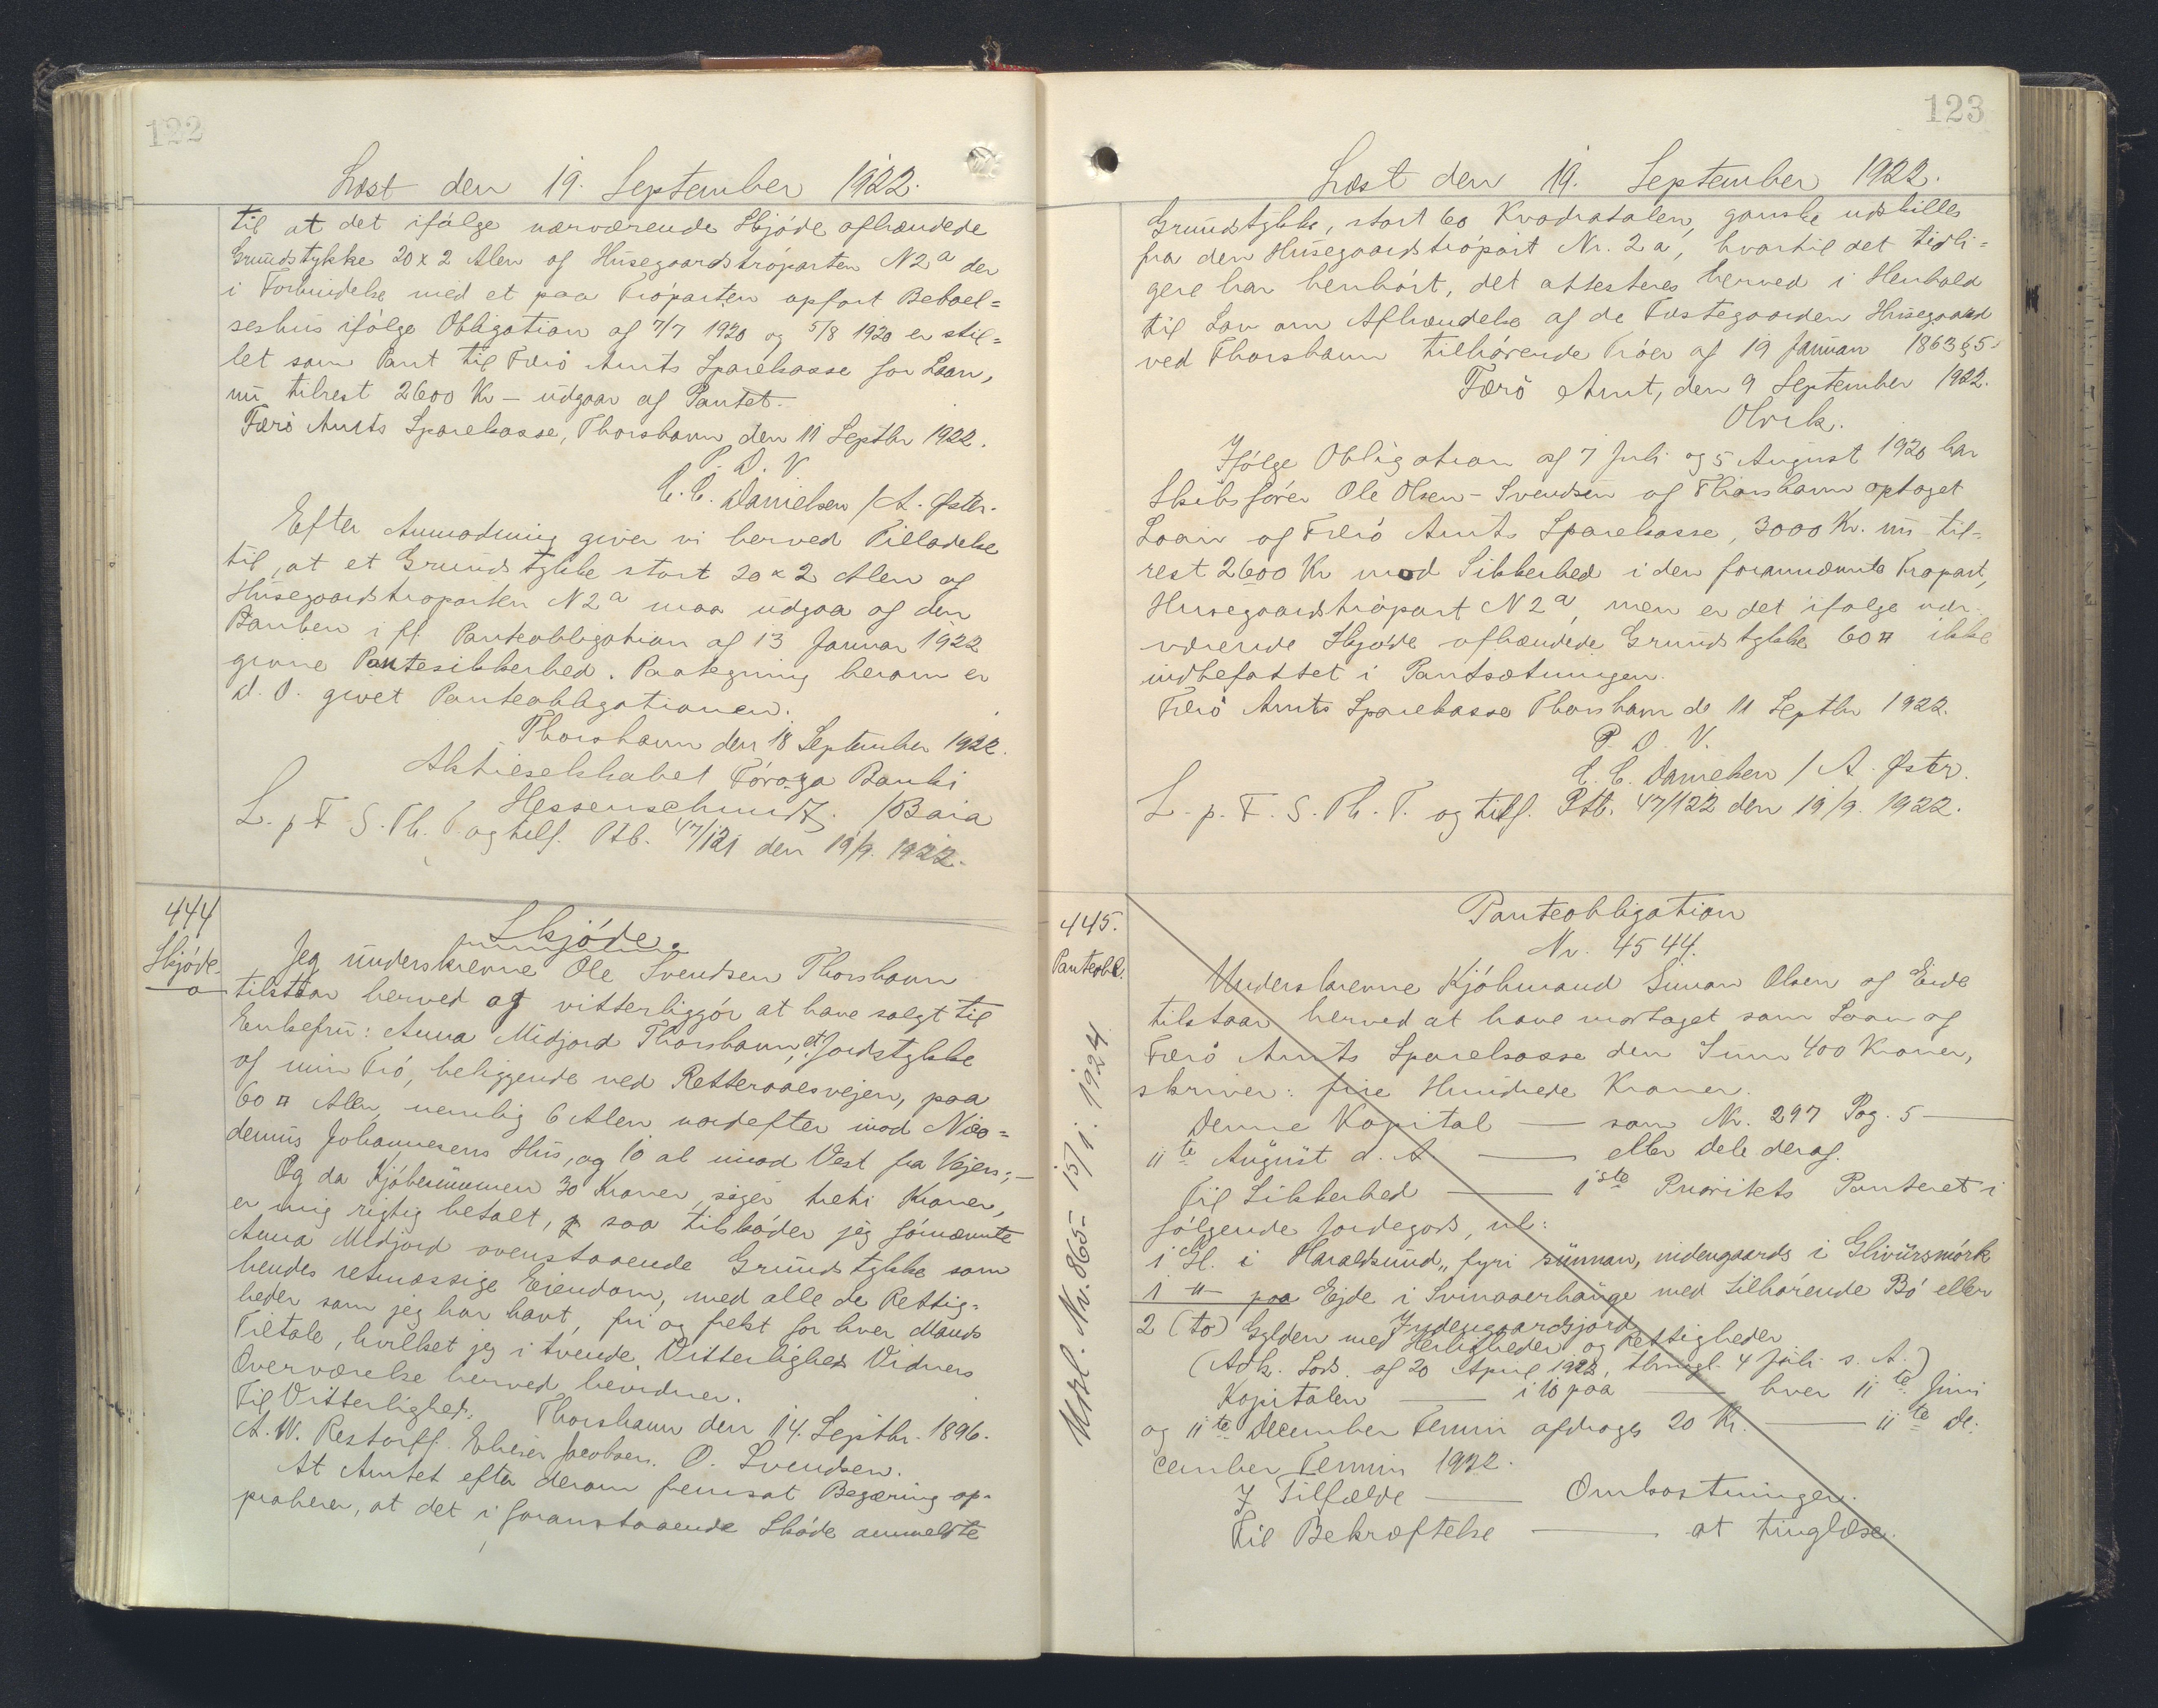 122
Læst den 19. September 1922.
til at det ifølge nærværende Skjøde afhændede
Grundstykke 20 x 2 Alen af Husegaardstróparten N 2a der
i Forbindelse med et paa Tróparten opført Beboel=
seshus ifølge Obligation af 7/7 1920 og 5/8 1920 er stil=
let som Pant til Færö Amts Sparekasse for Laan,
nu tilrest 2600 Kr – udgaar af Pantet.
Færö Amts Sparekasse, Thorshavn, den 11 Septbr 1922.
P. D. V
C. C. Danielsen / A. Øster.
Efter Anmodning giver vi herved Tilladelse
til, at et Grundstykke stort 20 x 2 Alen af
Husegaardstroparten N 2a maa udgaa af den
Banken i fl. Panteobligation af 13 Januar 1922
givne Pantesikkerhed. Paategning herom er
d. D. givet Panteobligationen.
Thorshavn den 18 September 1922.
Aktieselskabet Føroya Banki
Hessenschmidt. / Baia
L. p F. S. Th. T. og tilf. Ptb. 47/121 den 19/9. 1922.
444
Skjøde
Skjóde.
Jeg underskrevne Ole Svendsen Thorshavn
tilstaar herved og vitterliggór at have solgt til
Enkefru: Anna Midjord Thorshavn, et Jordstykke
af min Tró, beliggende ved Retteraaesvejen, paa
60 □ Alen, nemlig 6 Alen nordefter imod Nico=
demus Johannesens Hus, og 10 al imod Vest fra Vejen; –
Og da Kjóbesummen 30 Kroner, siger treti Kroner,
er mig rigtig betalt, saa tilskóder jeg fórnævnte
Anna Midjord ovenstaaende Grundstykke som
hendes retmæssige Eiendom, med alle de Rettig=
heder som jeg har havt, fri og frelst for hver Mands
Tiltale, hvilket jeg i tvende Vitterligheds Vidners
Overværelse herved bevidner.
Til Vitterlighed: Thorshavn den 14. Septbr. 1896.
A. W. Restorff. Elieser Jacobsen. O. Svendsen.
At Amtet efter derom fremsat Begæring ap-
proberer, at det i foranstaaende Skóde anmeldte
123
Læst den 19. September 1922.
Grundstykke, stort 60 Kvadratalen, ganske udskilles
fra den Husegaardstrópart Nr. 2 a, hvortil det tidli=
gere har henhórt, det attesteres herved i Henhold
til Lov om Afhændelse af de Fæstegaarden Husegaard
ved Thorshavn tilhórende Tróer af 19 Januar 1863 § 5.
Færö Amt, den 9 September 1922.
Olrik.
Ifólge Obligation af 7 Juli og 5 August 1920 har
Skibsfórer Ole Olsen-Svendsen af Thorshavn optaget
Laan af Færö Amts Sparekasse, 3000 Kr. nu til=
rest 2600 Kr mod Sikkerhed i den forannævnte Tropart,
Husegaardstrópart N 2a, men er det ifølge nær-
værende Skjóde afhændede Grundstykke 60 □ ikke
indbefattet i Pantsætningen.
Færö Amts Sparekasse Thorshavn d. 11 Septbr 1922.
P. D. V.
C. C. Danielsen / A. Øster.
L. p. F. S. Th. T. og tilf. Ptb. 47/122 den 19/9. 1922.
445.
Panteobl.
Panteobligation
Nr. 4544.
Underskrevne Kjóbmand Simon Olsen af Eide
tilstaar herved at have modtaget som Laan af
Færö Amts Sparekasse den Sum 400 Kroner,
skriver: fire Hundrede Kroner.
Denne Kapital — som Nr. 297 Pag. 5 —
11te August d. A. — eller dele deraf.
Til Sikkerhed — 1ste Prioritets Panteret i
fólgende Jordegods, nl:
1 Gl. i Haraldsund „fyri sunnan, indengaards i Glivursmórk
1 " paa Ejde i Svinaaerhauge med tilhórende Bó eller
Indengaardsjord
2 (to) Gylden med Herligheder og Rettigheder
(Adk. Sods. af 20 April 1922, thingl. 4 Juli s. A.)
Kapitalen — i 10 paa — hver 11te Juni
og 11te December Termin afdrages 20 Kr. — 11te De.
cember Termin 1922.
I Tilfælde — Omkostninger.
Til Bekræftelse — at tinglæse.
Udsl. Nr. 865- 15/1. 1924